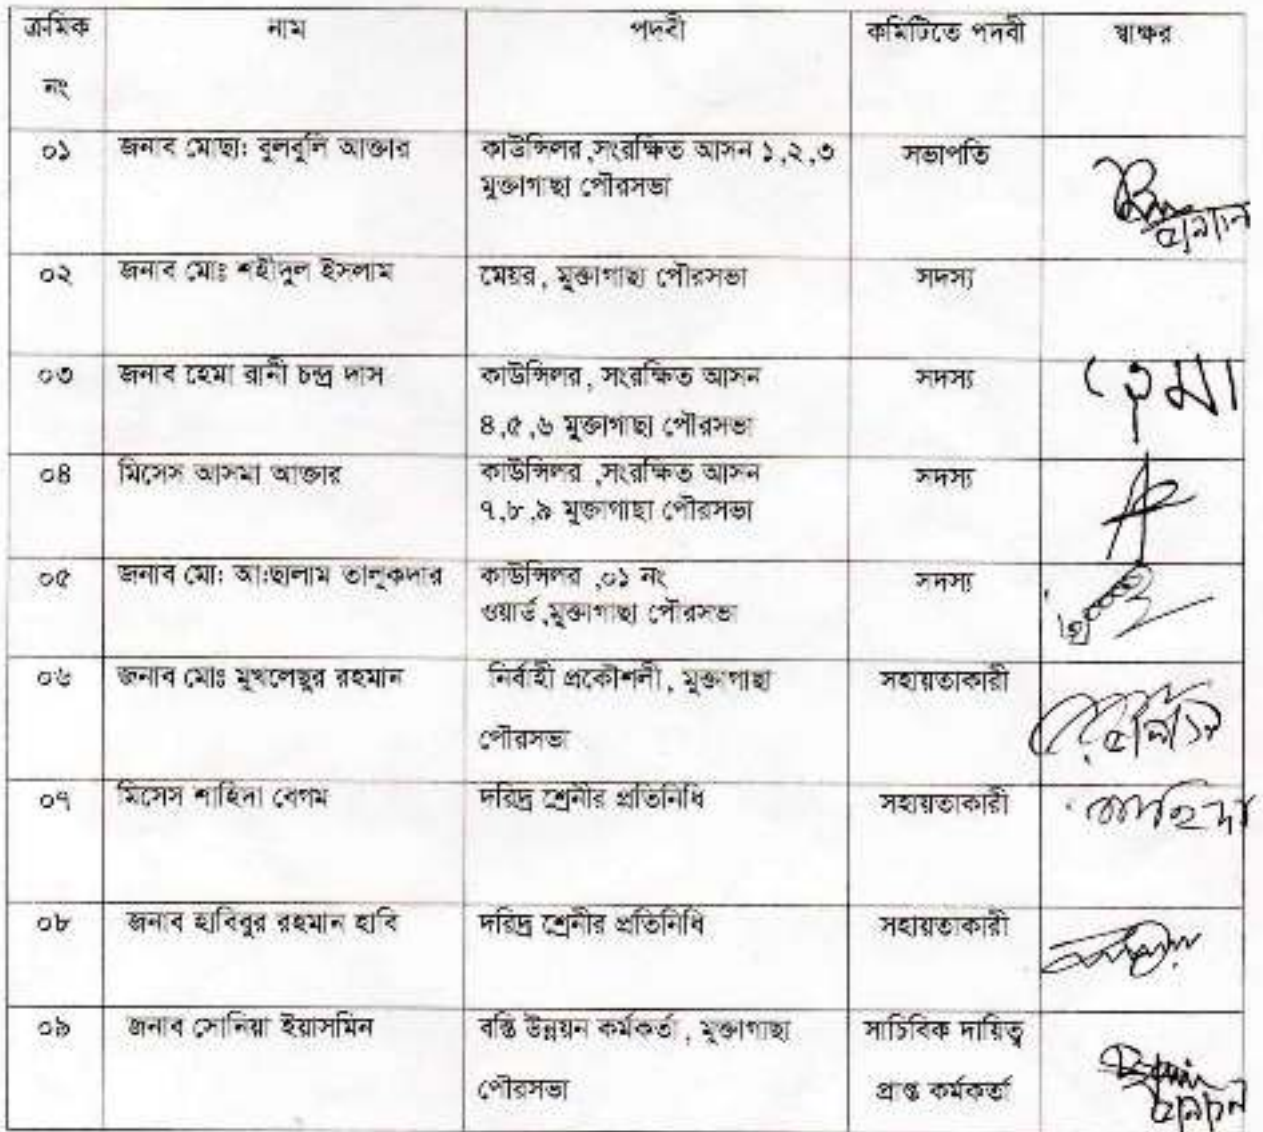 ক্রমিক নাম পদবী কমিটিতে পদবী স্বাক্ষর
নং
০১ জনাব মোছা: বুলবুলি আক্তার কাউন্সিলর,সংরক্ষিত আসন ১,২,৩ সভাপতি
মুক্তাগাছা পৌরসভা
০২ জনাব মোঃ শহীদুল ইসলাম মেয়র, মুক্তাগাছা পৌরসভা সদস্য
০৩ জনাব হেমা রানী চন্দ্র দাস কাউন্সিলর, সংরক্ষিত আসন সদস্য হেমা
৪,৫,৬ মুক্তাগাছা পৌরসভা
০৪ মিসেস আসমা আক্তার কাউন্সিলর ,সংরক্ষিত আসন সদস্য
৭,৮,৯ মুক্তাগাছা পৌরসভা
০৫ জনাব মো: আ:ছালাম তালুকদার কাউন্সিলর ,০১ নং সদস্য
ওয়ার্ড,মুক্তাগাছা পৌরসভা
০৬ জনাব মোঃ মুখলেছুর রহমান নির্বাহী প্রকৌশলী, মুক্তাগাছা সহায়তাকারী
পৌরসভা
০৭ মিসেস শাহিদা বেগম দরিদ্র শ্রেনীর প্রতিনিধি সহায়তাকারী শাহিদা
০৮ জনাব হাবিবুর রহমান হাবি দরিদ্র শ্রেনীর প্রতিনিধি সহায়তাকারী
০৯ জনাব সোনিয়া ইয়াসমিন বস্তি উন্নয়ন কর্মকর্তা, মুক্তাগাছা সাচিবিক দায়িত্ব
পৌরসভা প্রাপ্ত কর্মকর্তা